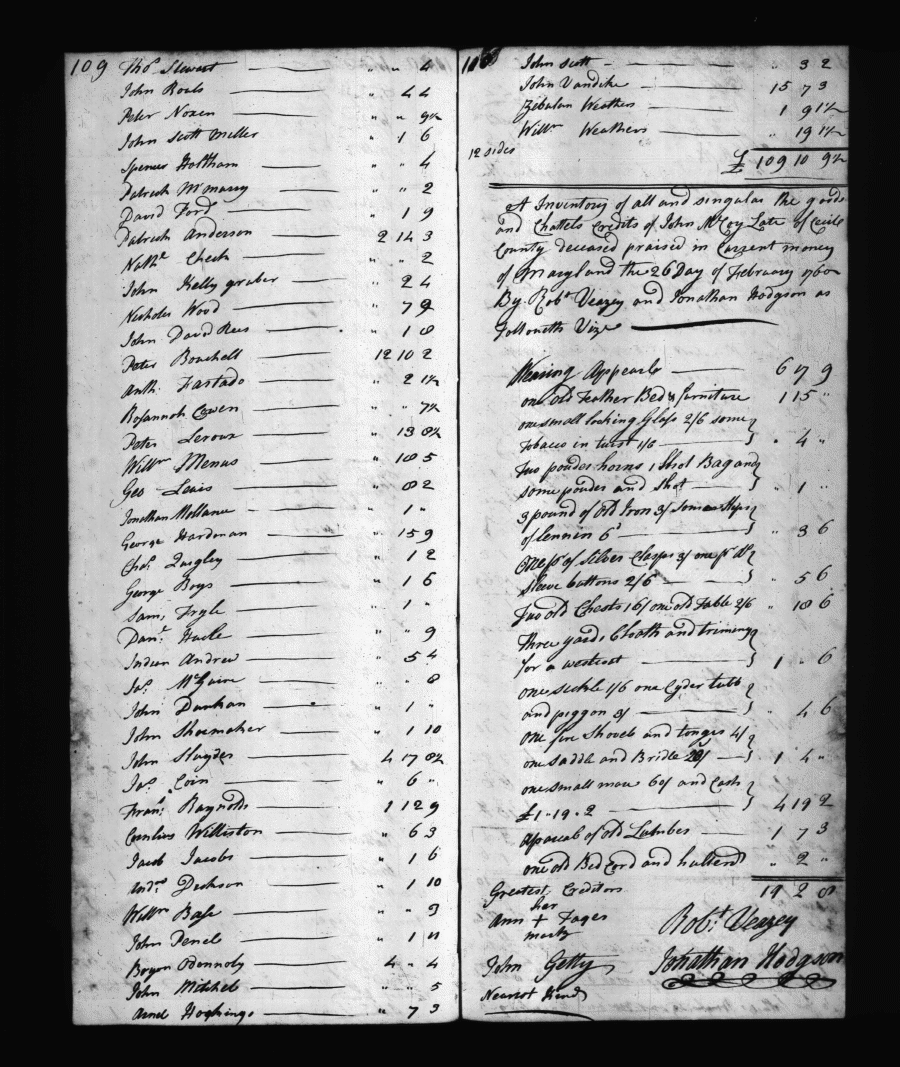 109 Thos. Stewart — " " 4
John Roels — " 4 4
Peter Noxen — " " 9½
John Scott Miller " 1 6
Spencer Holtham — " " 4
Patrick McManey — " " 2
David Ford — " 1 9
Patrick Anderson — 2 14 3
Nathl. Cheek — " " 2
John Kelly graber — " 2 4
Nicholas Wood — " 7 9
John David Rees — " 1 8
Peter Bouchell — 12 10 2
Anth. Fastado — " 2 1½
Rosannah Cowen — " " 7½
Peter Leroux — " 13 8½
Willm Menus — " 18 5
Geo Lewis — " 8 2
Jonathan — " 1 "
George Hardman — " 15 9
Chs. Quigley — " 1 2
George Boys — " 1 6
Sam. Fryle — " 1 "
Danl. — " " 9
Indian Andrew — " 5 4
Jas. McGuire — " " 8
John Dunkan — " 1 "
John Shoemaker — " 1 10
John Sluyder — 4 17 8½
Jas. Coin — " 6 "
Frans. Raynolds — 1 12 9
Cornlius Williston — " 6 3
Jacob Jacobs — " 1 6
Andw. Dickson — " 1 10
Willm Bass — " " 3
John — " 1
— 4 " 4
John Mitchel — " " 5
— " 7 3
John Scott — " 3 2
John Vandike — 15 7 3
Zebulan Weathers — 1 9 1½
Willm Weathers — " 19 1½
12 sides
£ 109 10 9½
A Inventory of all and singular the goods
and Chattels Credits of John McCoy Late of Cecile
County deceased praised in Current money
of Maryland the 26 Day of February 1760
By Robt. Veazey and Jonathan Hodgson as
followeth Viz.
Wearing Apperele — 6 17 9
one old Feather Bed & furniture 1 15 "
one small looking Glass 2/6 some
Tobacco in twist 1/6 — " 4 "
Two pouder horns 1 Shot Bag and
some pouder and Shot — " 1 "
3 pound of old Iron 3/
of Lennin 6d — " 3 6
One pr. of Silver Clasps 3/ one pr. Do.
sleeve buttons 2/6 — " 5 6
Two old Chests 16/ one old Table 2/6 " 18 6
Three yards Cloath and triming
for a westcoat — 1 " 6
one sickle 1/6 one Cyder tubb
and piggon 3/ — " 4 6
one fire Shovel and tonges 4/
one Saddle and Bridle 20/ — 1 4 "
one small mare 60/ and Cash
£1.19.2 — 4 19 2
A parcel of old Lumber — 1 7 3
one old Bed Cord and halters " 2 "
Greatest Creditors 19 2 8
her
Ann + Fages
mark
Robt. Veazey
John Getty
Jonathan Hodgson
Nearest Kind